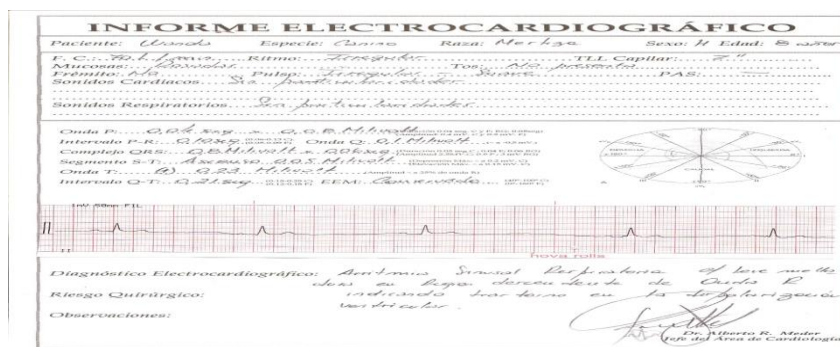 INFORME ELECTROCARDIOGRÁFICO
Paciente: Wanda Especie: Canino Raza: Mestiza Sexo: H Edad: 8 años
F. C.: Ritmo: Irregular TLL Capilar: 2"
Mucosas: Rosadas Tos: No presenta
Frémito: No Pulso: Irregular - Suave PAS:
Sonidos Cardíacos: Sin particularidades
Sonidos Respiratorios: Sin particularidades
Onda P: 0,04 seg x 0,08 Milivolt
Intervalo P-R: 0,10 seg Onda Q: 0,1 Milivolt
Complejo QRS: 0,8 Milivolt x 0,06 seg
Segmento S-T: Ascenso 0,05 Milivolt
Onda T: 0,23 Milivolt
Intervalo Q-T: 0,21 seg EEM: Conservado
1mV 50mm FIL
II
II
nova rolls
Diagnóstico Electrocardiográfico: Arritmia Sinusal Respiratoria
en rama descendente de Onda R
Riesgo Quirúrgico: indicando trastorno en la
ventricular.
Observaciones:
Dr. Alberto R. Meder
Jefe del Área de Cardiología